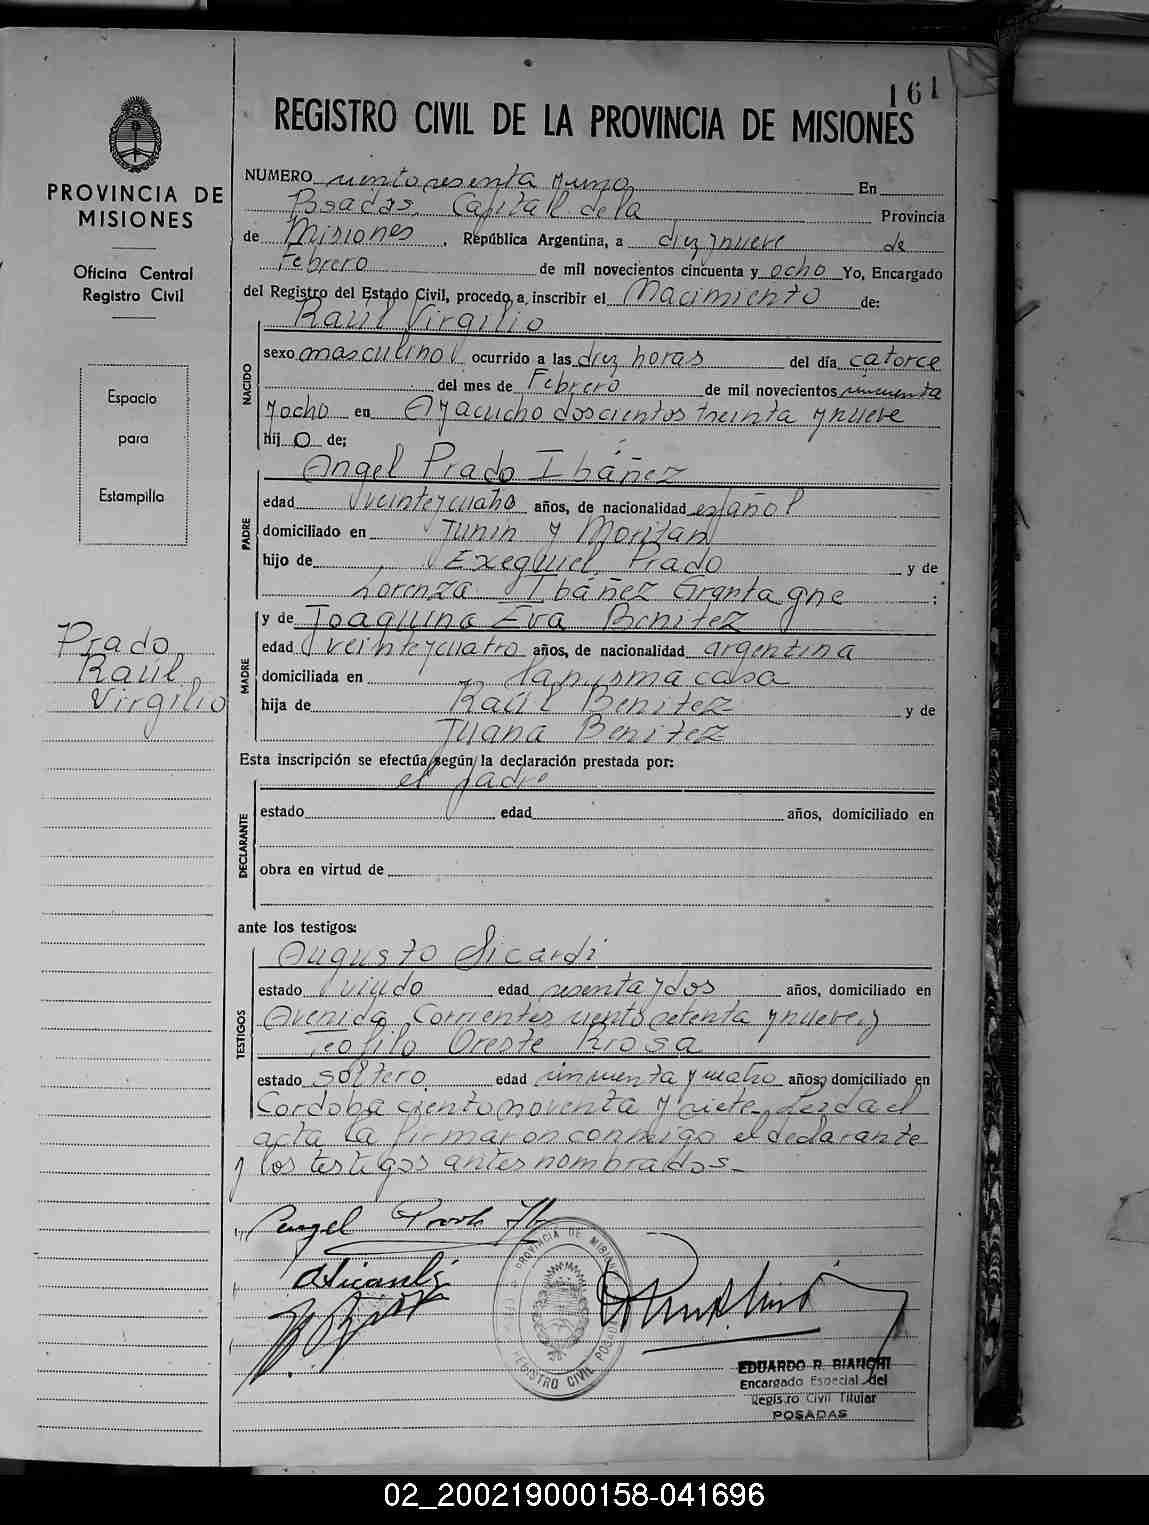 161
REGISTRO CIVIL DE LA PROVINCIA DE MISIONES
PROVINCIA DE
MISIONES
Oficina Central
Registro Civil
Espacio
para
Estampilla
Prado
Raúl
Virgilio
NUMERO ciento sesenta y uno En
Posadas, Capital de la Provincia
de Misiones, República Argentina, a diez y nueve de
Febrero de mil novecientos cincuenta y ocho Yo, Encargado
del Registro del Estado Civil, procedo a inscribir el Nacimiento de:
NACIDO
Raúl Virgilio
sexo masculino ocurrido a las diez horas del día catorce
del mes de Febrero de mil novecientos cincuenta
y ocho en Ayacucho doscientos treinta y nueve
hij o de;
PADRE
Angel Prado Ibáñez
edad veinte y cuatro años, de nacionalidad español
domiciliado en Junin y
hijo de Exequiel Prado y de
Lorenza Ibáñez ;
MADRE
y de Joaquina Eva Benitez
edad veinte y cuatro años, de nacionalidad argentina
domiciliada en la misma casa
hija de Raúl Benitez y de
Juana Benitez
Esta inscripción se efectúa según la declaración prestada por:
DECLARANTE
el padre
estado edad años, domiciliado en
obra en virtud de
ante los testigos:
TESTIGOS
Augusto Sicardi
estado viudo edad sesenta y dos años, domiciliado en
Avenida Corrientes ciento setenta y nueve y
Teofilo Oreste Riosa
estado soltero edad cincuenta y cuatro años, domiciliado en
Cordoba ciento noventa y siete. Leida el
acta la firmaron conmigo el declarante
y los testigos antes nombrados.-
Angel Prado Ib
ASicardi
PROVINCIA DE MISIONES
REGISTRO CIVIL POSADAS
EDUARDO R. BIANCHI
Encargado Especial del
Registro Civil Titular
POSADAS
02_200219000158-041696